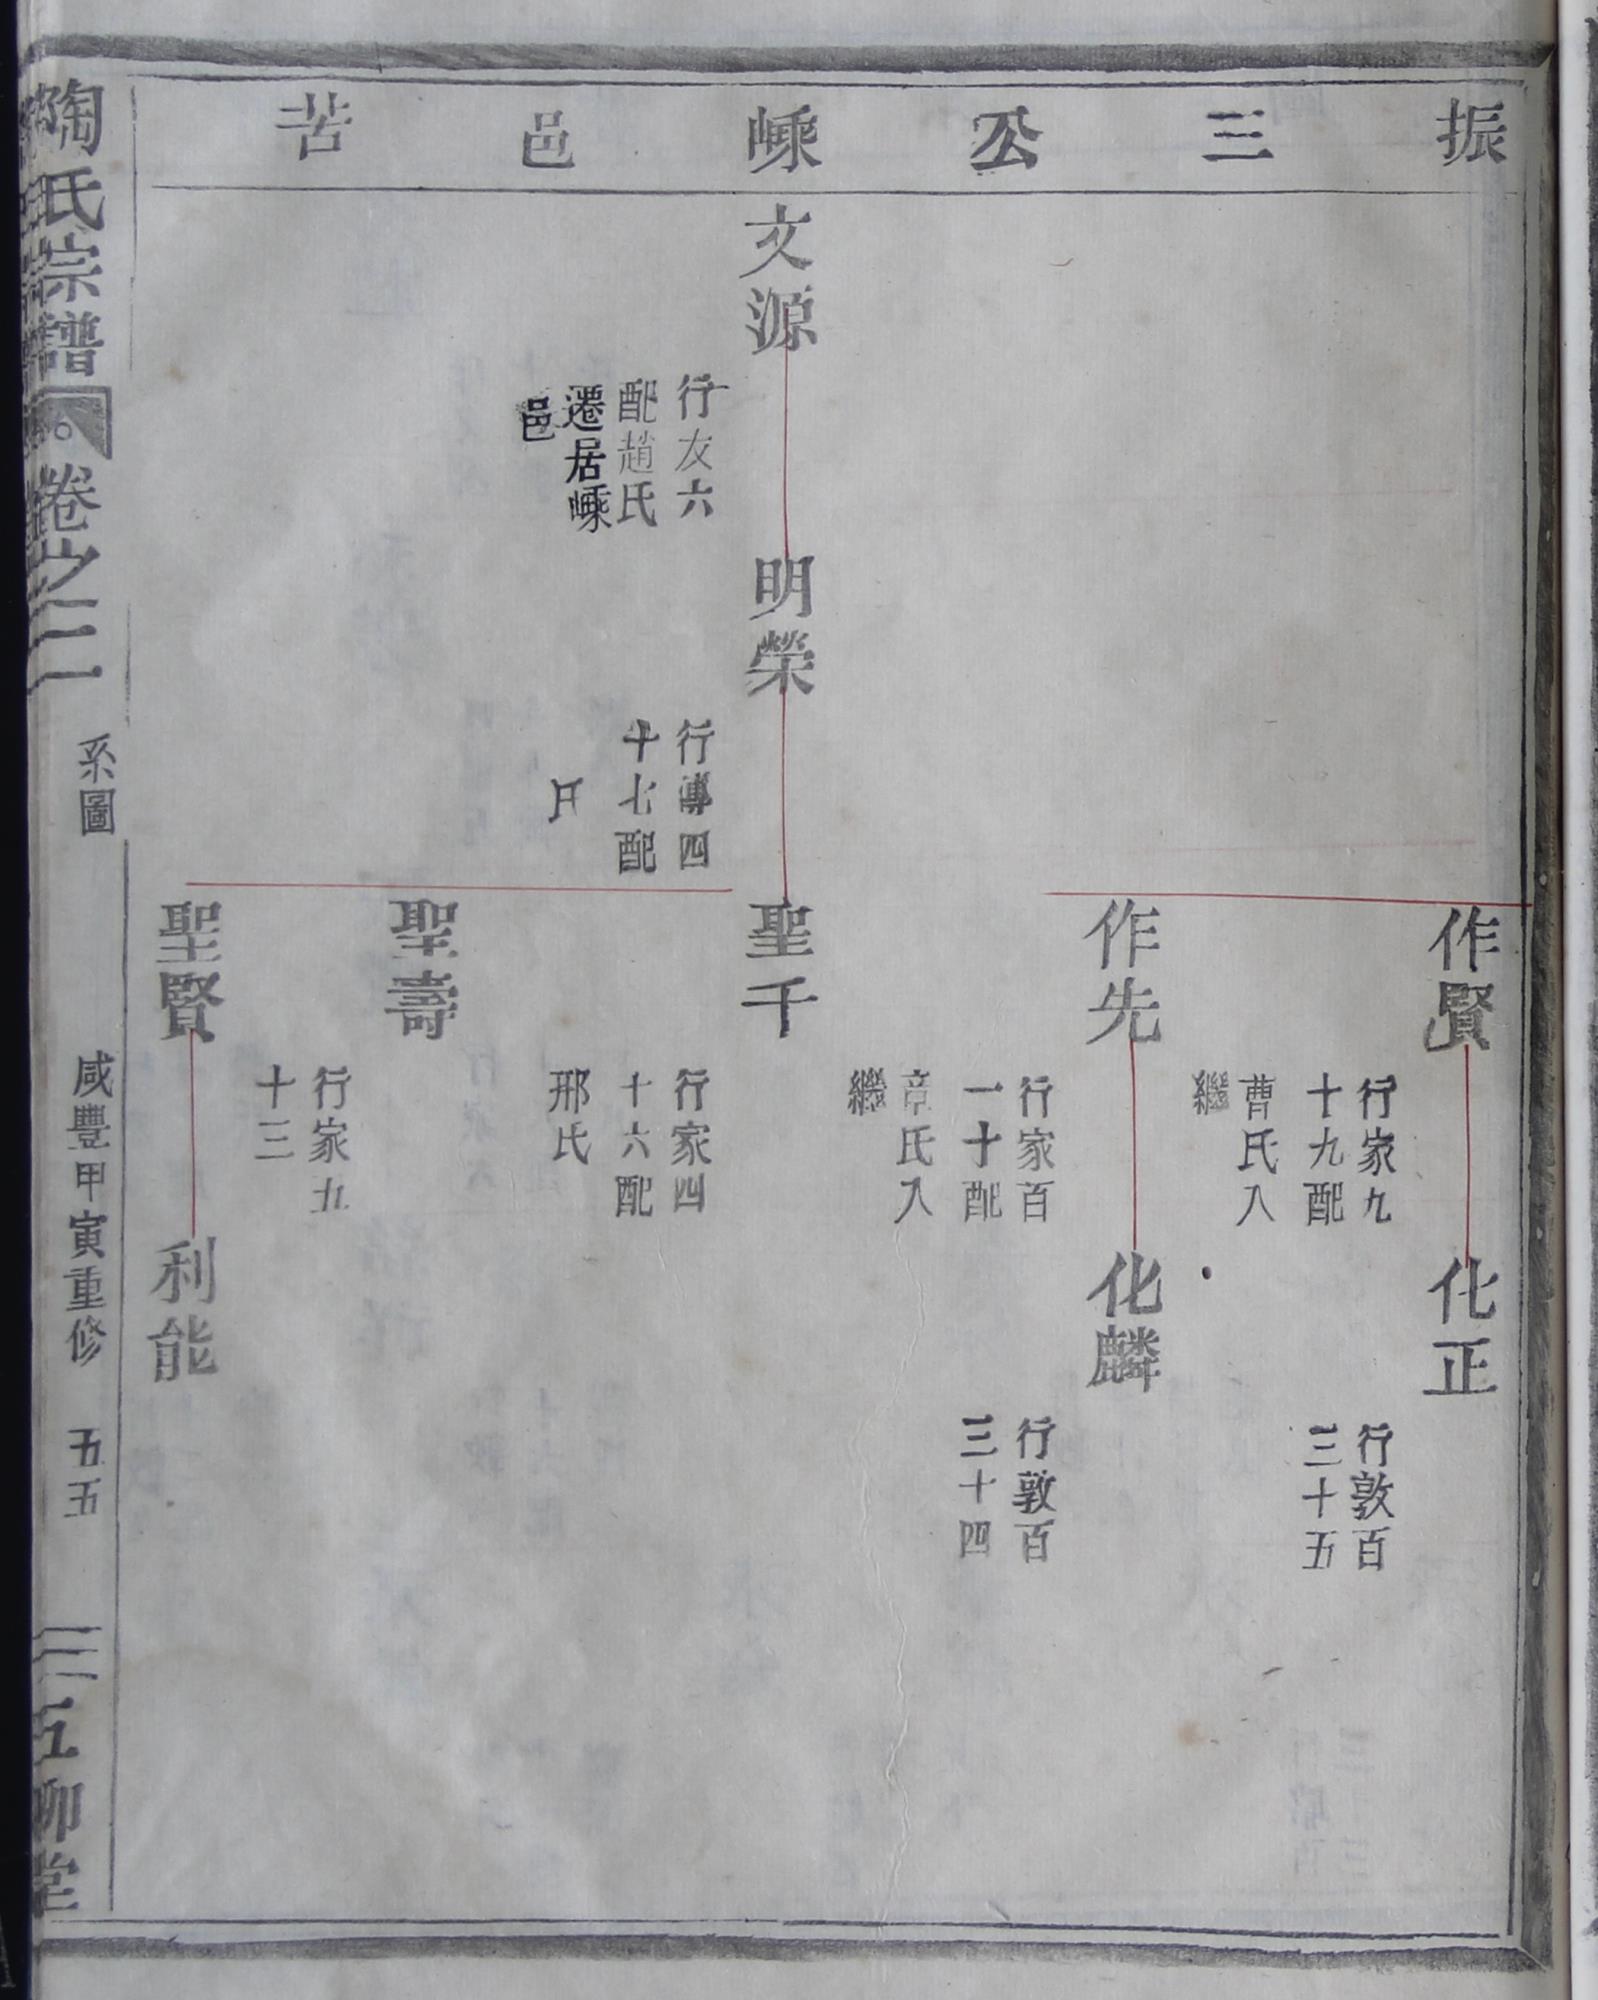 振三公嵊邑苦
作賢
行家九
十九配
曹氏入
繼
化正
行敦百
三十五
作先
行家百
一十配
章氏入
繼
化麟
行敦百
三十四
文源
行友六
配趙氏
遷居嵊
邑
明榮
行溥四
十七配
聖千
行家四
十六配
邢氏
聖壽
行家九
十三
聖賢
利能
陶氏宗譜
卷之二
系圖
咸豐甲寅重修
五五
五柳堂